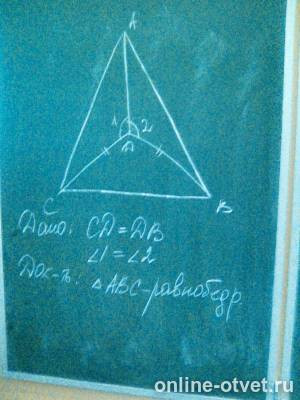 A
1 2
D
C
B
Дано: CD = DB
∠1 = ∠2
Док-ть: △ABC-равнобедр.
online-otvet.ru